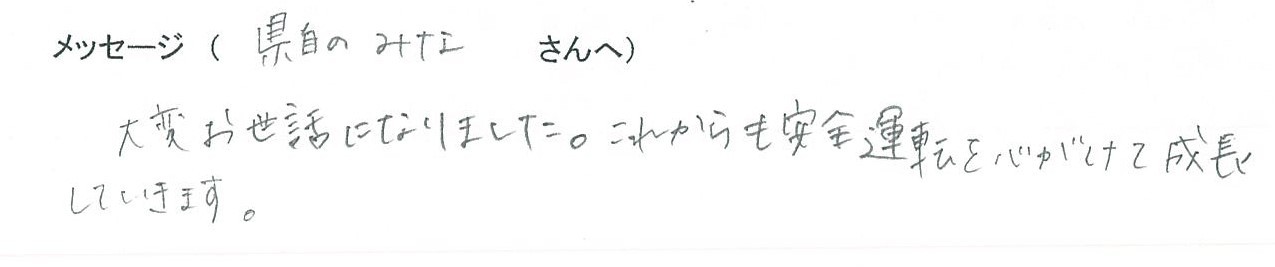 メッセージ（ 県自の みなさんへ）
大変お世話になりました。これからも安全運転を心がけて成長
していきます。